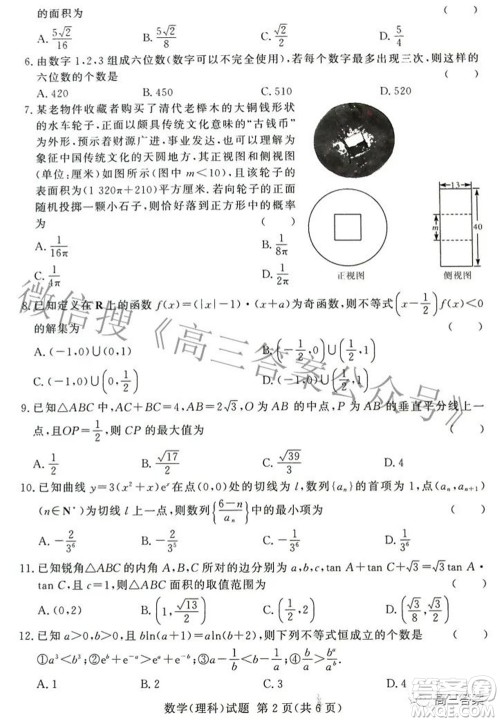 的面积为 ( )
A. 5√2/16 B. 5√2/8 C. √2/2 D. 5/4
6. 由数字 1,2,3 组成六位数(数字可以不完全使用),若每个数字最多出现三次,则这样的
六位数的个数是 ( )
A. 420 B. 450 C. 510 D. 520
7. 某老物件收藏者购买了清代老榉木的大铜钱形状
的水车轮子,正面以颇具传统文化意味的“古钱币”
为外形,预示着财源广进,事业发达,也可以理解为
象征中国传统文化的天圆地方,其正视图和侧视图
(单位:厘米)如图所示(图中实线与虚线),且该轮子的
表面积为(1 320π+210)平方厘米.若向轮子的正面
随机投掷一颗小石子,则恰好落到正方形中的概率
为 ( )
A. 1/16π B. 1/8π²
C. 1/4π D. 1/16
13
m
40
正视图 侧视图
8. 已知定义在 R 上的函数 f(x)=(|x|−1)·(x+a)为奇函数,则不等式(x−1/2)f(x)<0
的解集为 ( )
A. (−1,0)∪(0,1) B. (−1/2,0)∪(1/2,1)
C. (−1,0)∪(0,1/2) D. (−1,0)∪(1/2,1)
9. 已知△ABC 中,AC+BC=4,AB=2√3,O 为 AB 的中点,P 为 AB 的垂直平分线上一
点,且OP=1/2,则 PC 的最大值为 ( )
A. 1/2 B. √17/2 C. √39/3 D. 4
10. 已知曲线 y=3(x²+x)eˣ在点(0,0)处的切线为 l,数列{aₙ}的首项为 1,点(aₙ,aₙ₊₁)
(n∈N*)为切线 l 上一点,则数列{(6−n)/aₙ}中的最小项为 ( )
A. −2/3⁶ B. −1/3⁶ C. 1/3⁶ D. −2/3⁵
11. 已知锐角△ABC 的内角 A,B,C 所对的边分别为 a,b,c,
A. (0,2) B.
12. 已知 a>0,b>0,且 bln(a+1)=aln(b+1),则下列不等式恒成立的个数是 ( )
A. 1 B. 2 C. 3 D. 4
数学(理科)试题 第 2 页(共 6 页)
微信搜《高三答案公众号》
高三答案